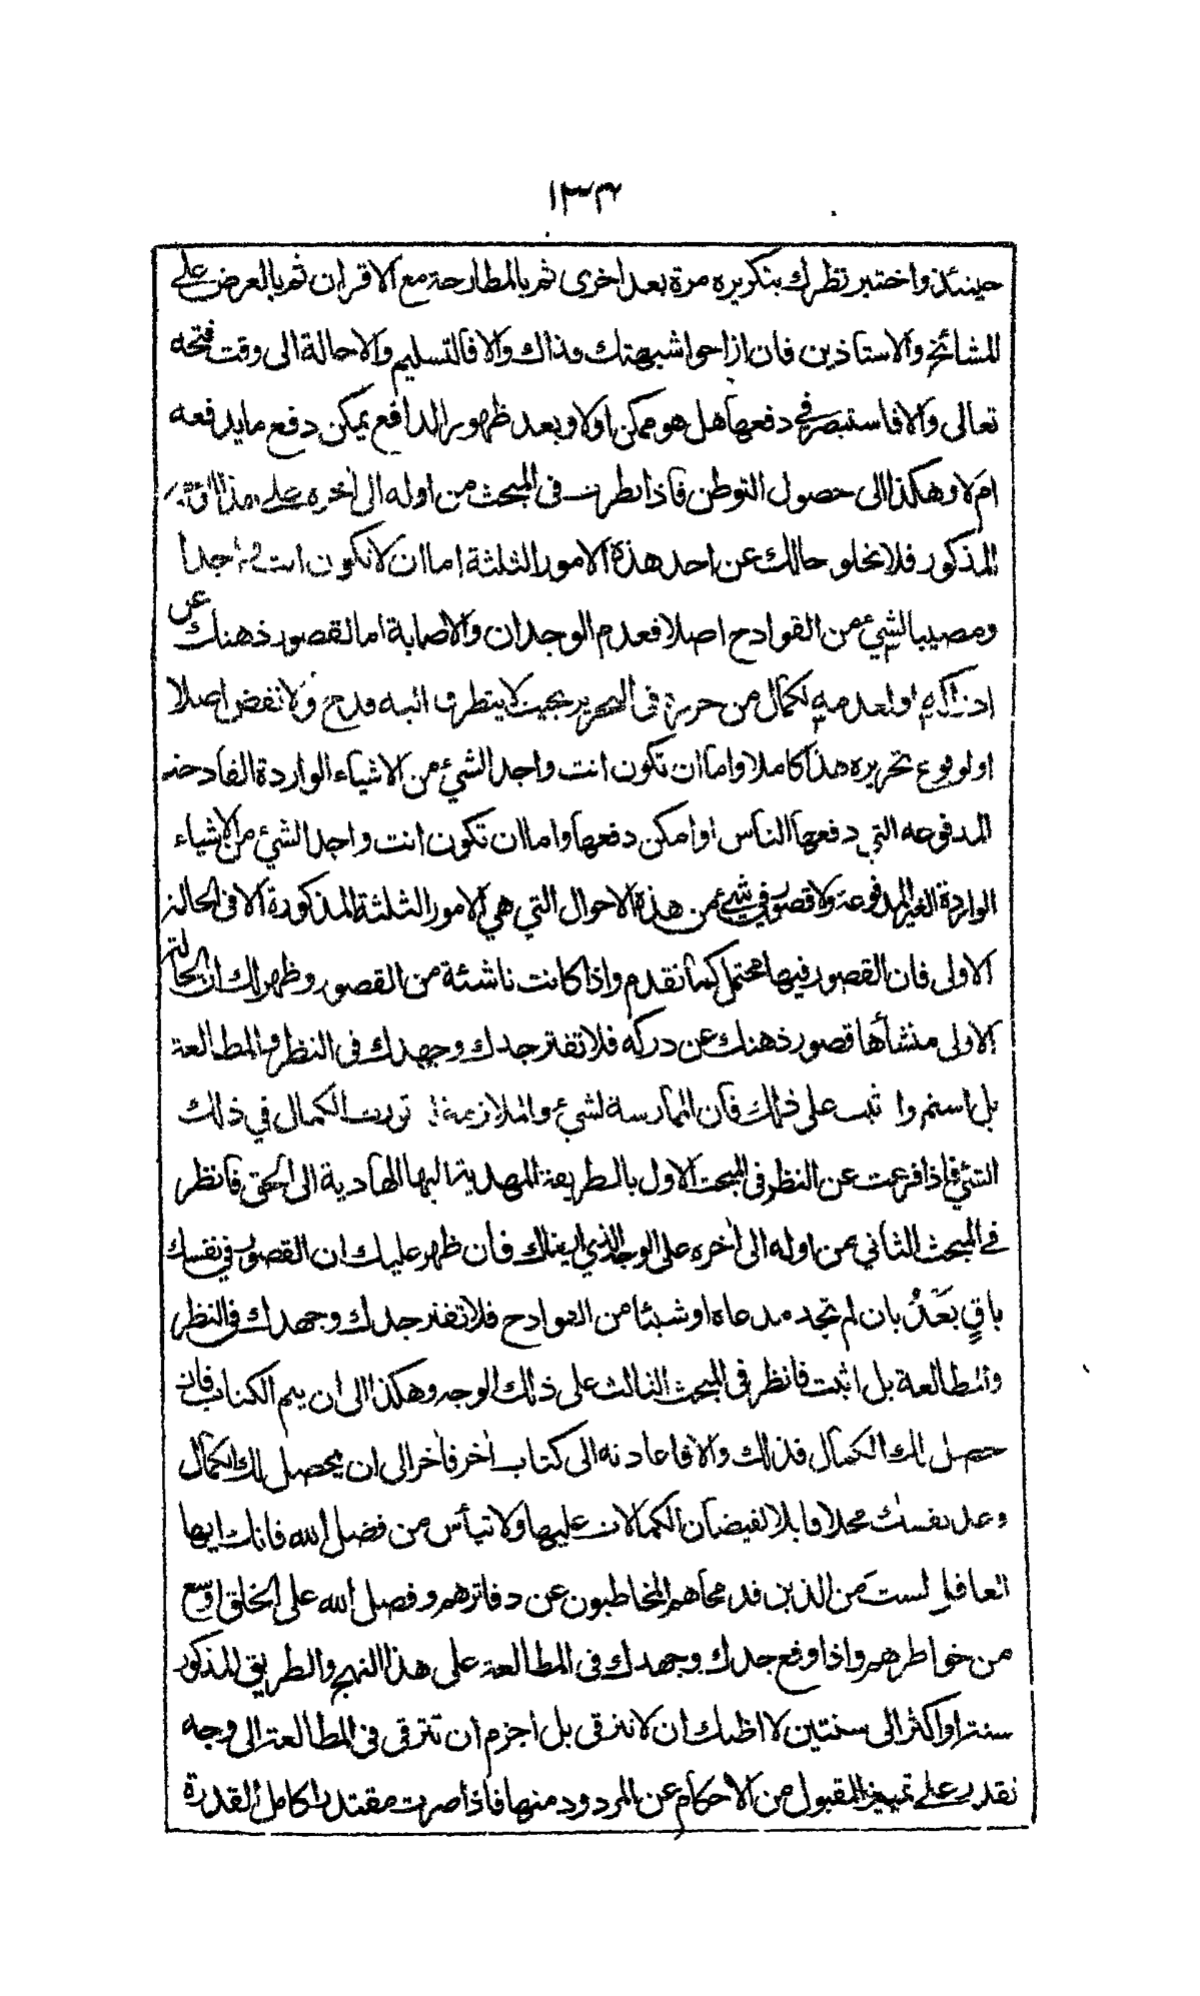 ١٣٣
حينئذ واختبر نظرك بتكريره مرة بعد اخرى ثم بالمطارحة مع الاقران ثم بالعرض على
المشائخ والاستاذين فان ازاحوا شبهتك فذاك والا فالتسليم والاحالة الى وقت فتحه
تعالى والا فاستبصر في دفعها هل هو ممكن اولا وبعد ظهور الدافع يمكن دفع ما يدفعه
ام لا وهكذا الى حصول التوطن فاذا نظرت في المبحث من اوله الى اخره على هذا
المذكور فلا يخلو حالك عن احد هذه الامور الثلثة اما ان لا تكون انت واجدا
ومصيبا لشيء من القوادح اصلا فعدم الوجدان والاصابة اما لقصور ذهنك عن
او لعدمه لكمال من حرره في التحرير بحيث لا يتطرف اليه قدح ولا نقض اصلا
او لوقوع تحريره هذا كاملا واما ان تكون انت واجد الشيء من الاشياء الواردة القادحة
المدفوعه التي دفعها الناس او امكن دفعها واما ان تكون انت واجد الشيء من الاشياء
الواردة الغير المدفوعة ولا قصور في شيء من هذه الاحوال التي هي الامور الثلثة المذكورة الا في الحالة
الاولى فان القصور فيها محتمل كما تقدم واذا كانت ناشئة من القصور وظهر لك ان الحالة
الاولى منشأها قصور ذهنك عن دركه فلا تفتر جدك وجهدك في النظر والمطالعة
بل استم واثبت على ذلك فان الممارسة لشيء والملازمة تورث الكمال في ذلك
الشيء فاذا فرغت عن النظر في المبحث الاول بالطريقة المهدية اليها الهادية الى الحق فانظر
في المبحث الثاني من اوله الى اخره على الوجه الذي اريناك فان ظهر عليك ان القصور في نفسك
باقٍ بَعَدُ بان لم تجد مدعاه او شيئا من القوادح فلا تفتر جدك وجهدك في النظر
والمطالعة بل اثبت فانظر في المبحث الثالث على ذلك الوجه وهكذا الى ان يتم الكتاب فان
حصل لك الكمال فذلك والا فاعادته الى كتاب اخر فاخر الى ان يحصل لك الكمال
وعد نفسك محلا قابلا لفيضان الكمالات عليها ولا تيأس من فضل الله فانك ايها
العاقل لستَ من الذين قد محاهم المخاطبون عن دفاترهم وفضل الله على الخلق اوسع
من خواطرهم واذا وقع جدك وجهدك في المطالعة على هذا النهج والطريق المذكور
سنة او اكثر الى سنتين لا اظنك ان لا تترقى بل اجزم ان تترقى في المطالعة الى وجه
تقدر على تمييز المقبول من الاحكام عن المردود منها فاذا صرت مقتدرا كامل القدرة